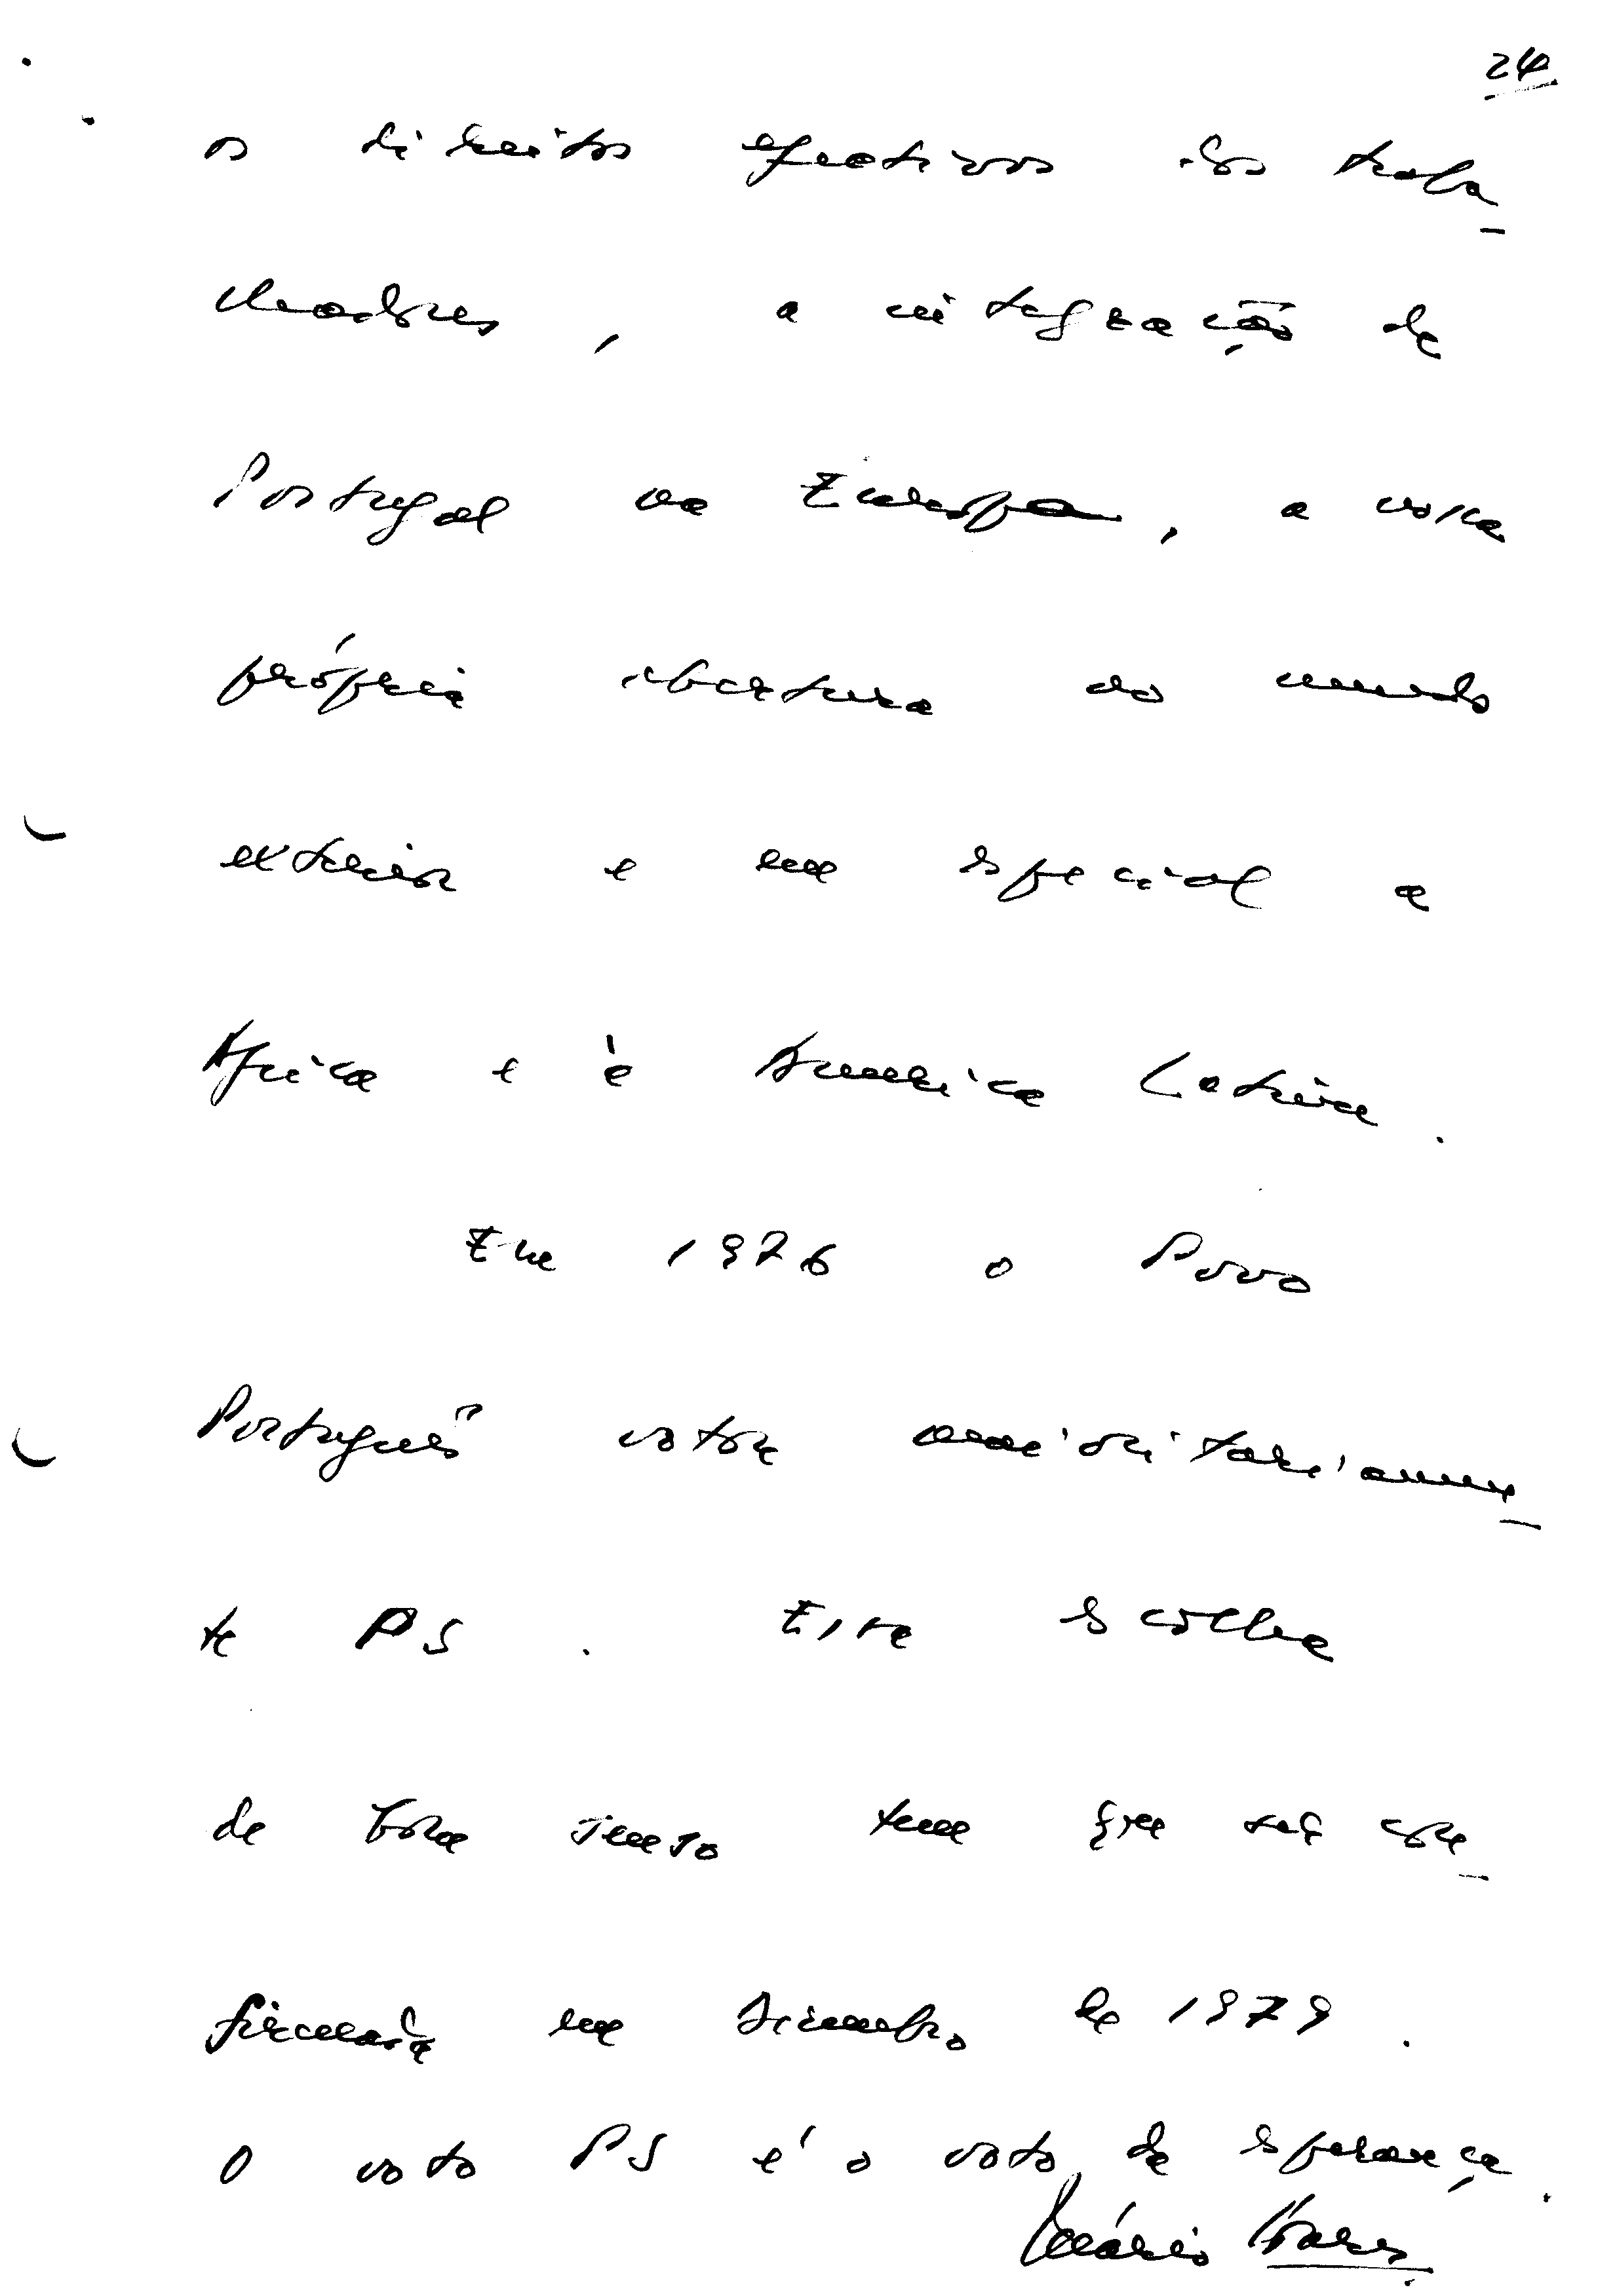 24
os direitos efectivos dos traba-
lhadores, a integração de
Portugal na Europa, a nossa
própria abertura ao mundo
exterior e em especial a
África e à América Latina.
Em 1976 o Povo
Português votou maioritariamen-
te PS. Essa escolha
de bom senso tem que ser con-
firmada em Dezembro de 1979.
O voto PS é o voto da esperança.
Mário Soares